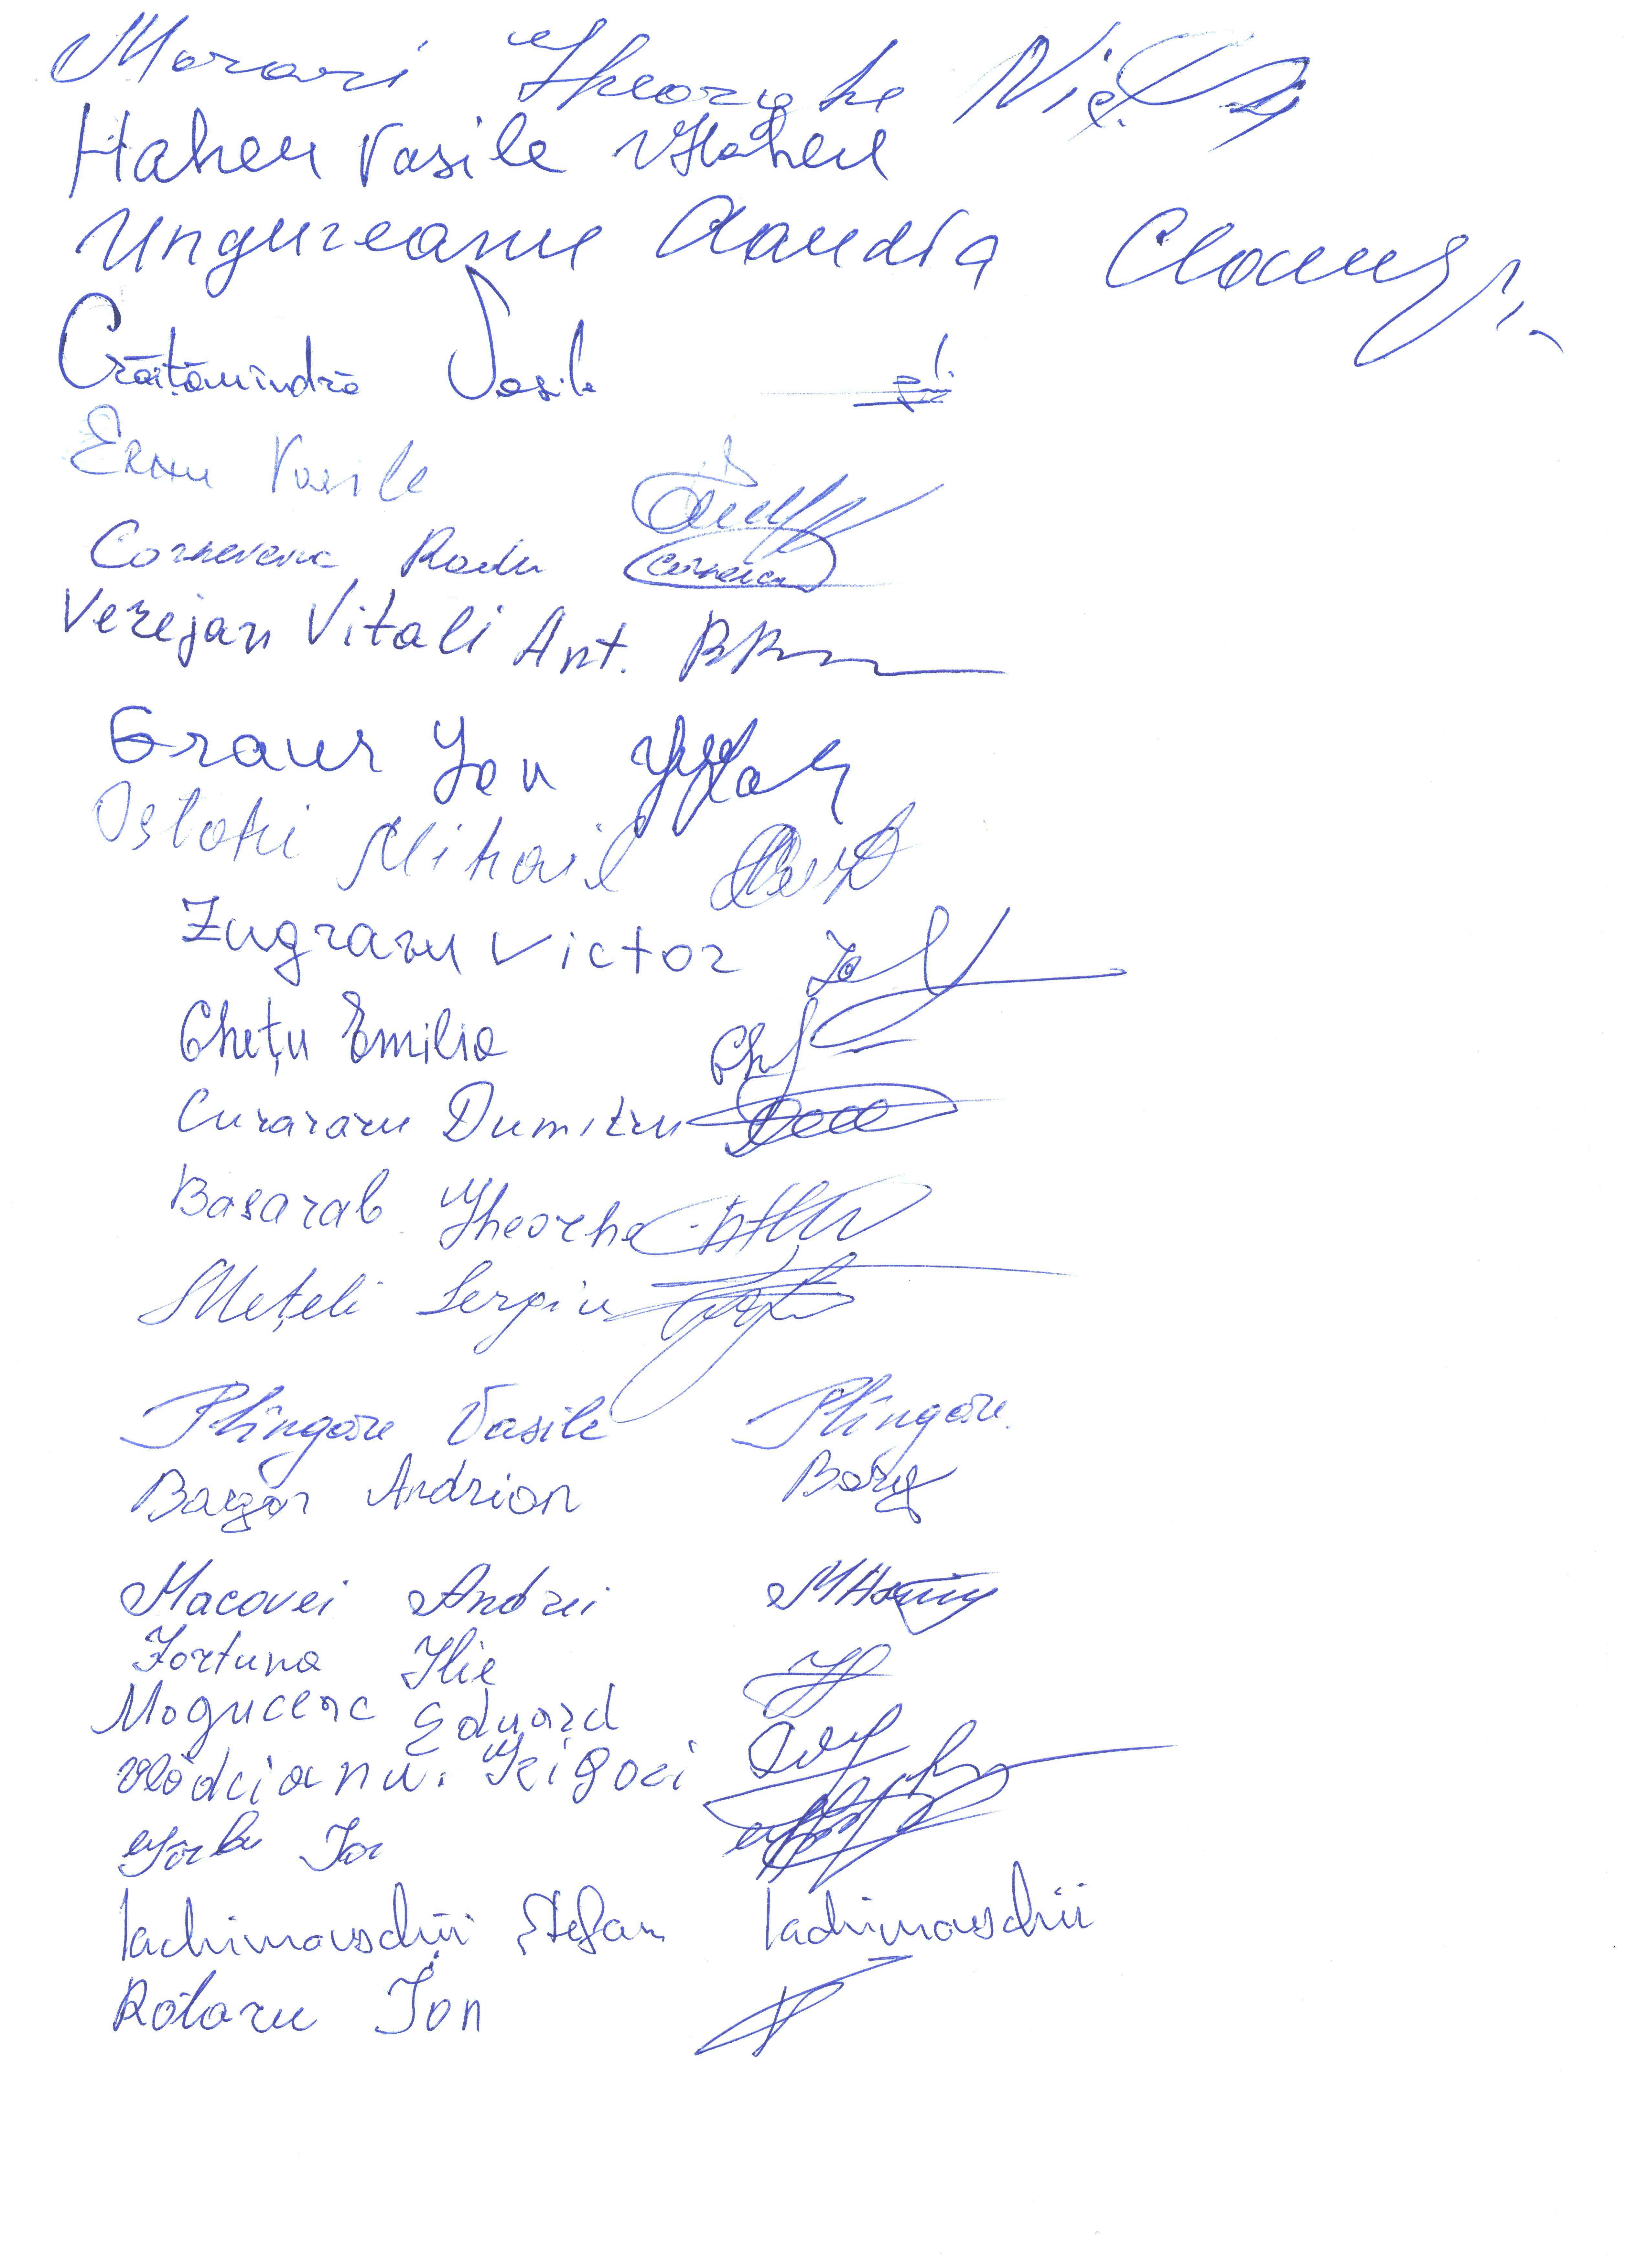 Morari Gheorghe
Haheu Vasile VHaheu
Ungureanu Claudia
Crăițămîndră Vasile
Ernu Vasile
Cornevenc Radu
Verejan Vitali Ant.
Graur Ion
Ostofii Mihail
Zugravu Victor
Ghețu Emilia
Curararu Dumitru
Basarab Gheorhe
Mețeli Sergiu
Plîngăre Vasile Plîngăre
Bargăr Andrion
Macovei Andrei
Fortuna Ilie
Mogucenc Eduard
Vlădcianu. Grigori
Gîrbu Ion
Iachimovschii Ștefan Iachimovschii
Rotaru Ion